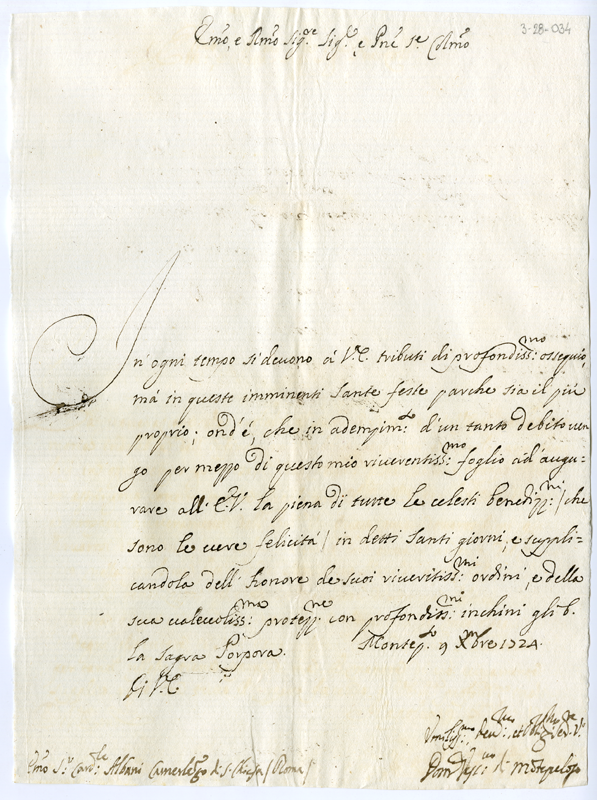 3-28-034
Emo, e Rmo Sig.re Sig.e, e Pne Se Colmo
In ogni tempo si devono à V.E. tributi di profondiss:mo ossequio,
má in queste imminenti Sante feste parche sia il più
proprio; ond'é, che in adempim:to d'un tanto debito ven
go per mezzo di questo mio riverentiss:mo foglio ad'augu-
rare all'E.V. la piena di tutte le celesti benedizz:ni / che
sono le vere felicitá / in detti Santi giorni, e suppli=
candola dell'honore de suoi riveritiss:mi ordini, e della
sua valevoliss:ma protezz:ne con profondiss:mi inchini gli b.
la Sagra Porpora. Montep.so 9 Xmbre 1724.
Di V.E.
Umiliss:mo dev:mo, et
Emo Sr. Card.le Albani Camerlengo di S. Chiesa / Roma /
di Montepeloso